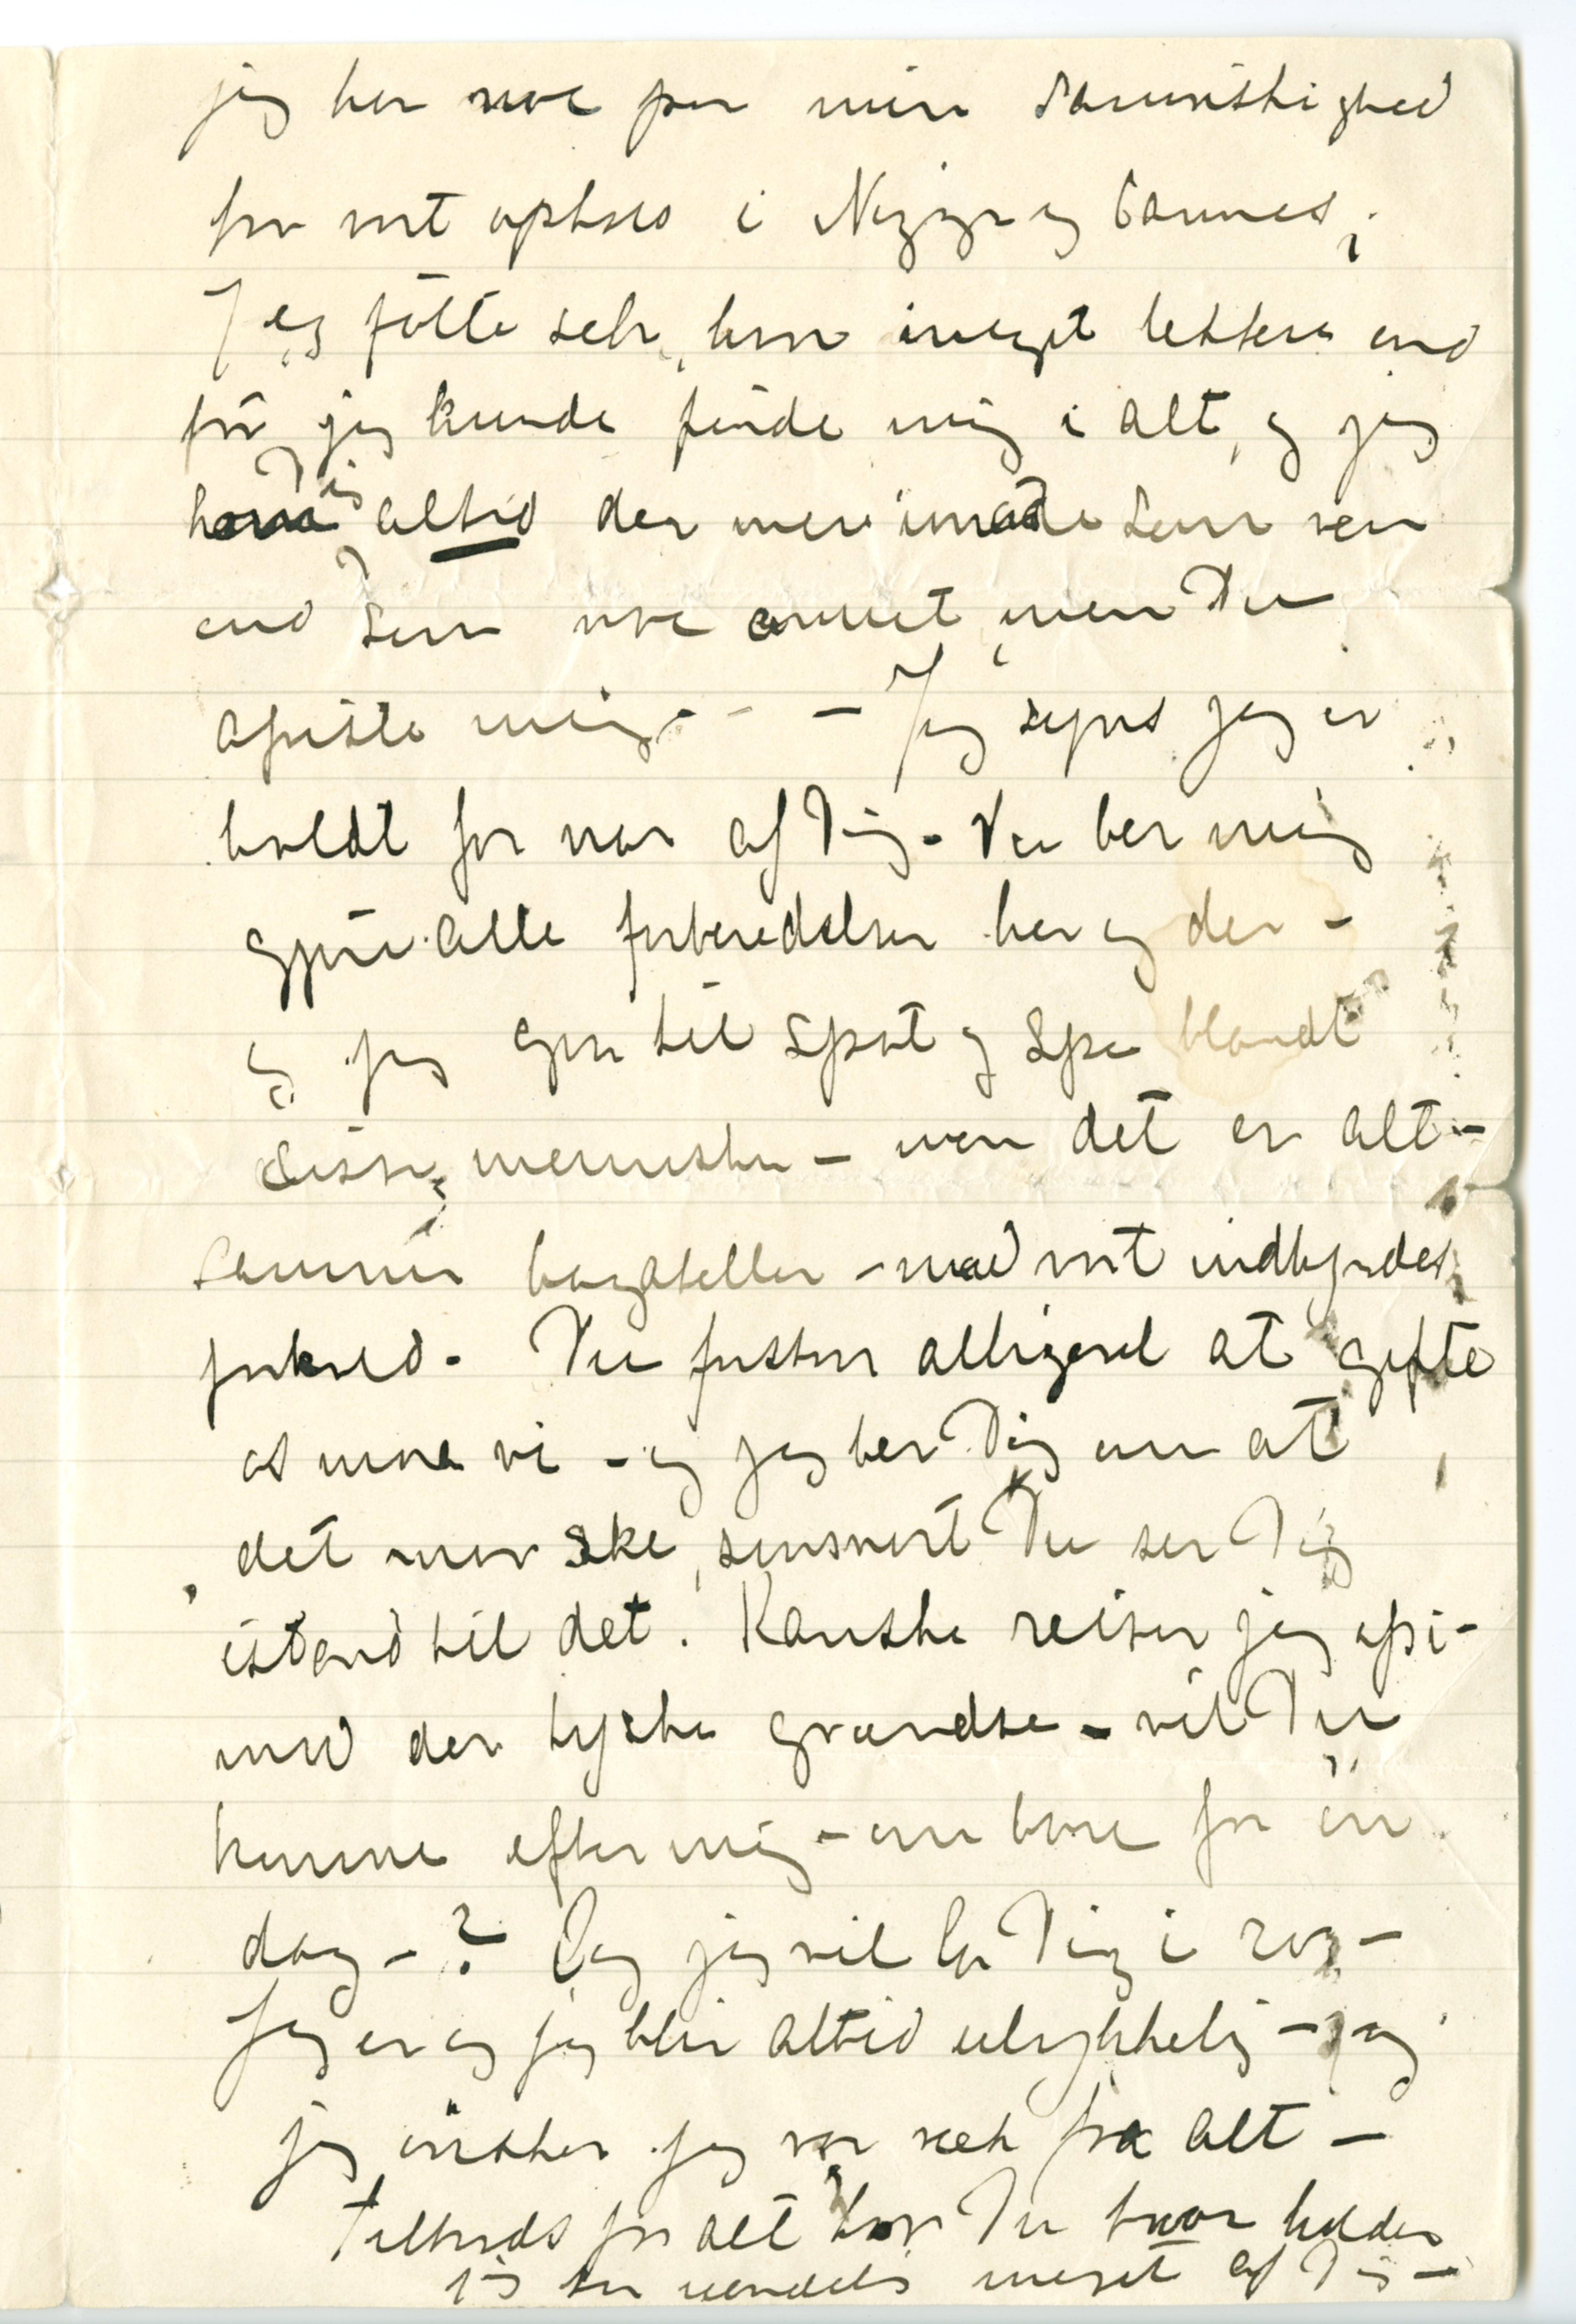 jeg ber noe for min Samvittighed
for vort ophold i Nizza og Cannes,
Jeg følte selv, hvor meget lettere end
før jeg kunde finde mig i alt, og jeg
altid der mere imøde som ven
end som noe annet, men Du
afviste mig. – – Jeg synes jeg er
holdt for nar af Dig – Du ber mig
gjøre alle forberedelser her og der –
og jeg gør til spot og spe blandt
disse mennesker – men det er alt-
sammen bagateller – mod vort indbyrdes
forhold. Du forstaar alligevel at gifte
os maa vi – og jeg ber Dig om at
det maa ske, saasnart Du ser Dig
istand til det. Kanske reiser jeg op i-
mod den tyske grændse – vil Du
komme efter mig – om bare for en
dag – ? Og jeg vil la Dig i ro –
Jeg er og jeg blir altid ulykkelig – og
jeg ønsker jeg var væk fra alt –
Tiltrods for alt tror Du hvor holder
jeg saa uendelig meget af Dig –